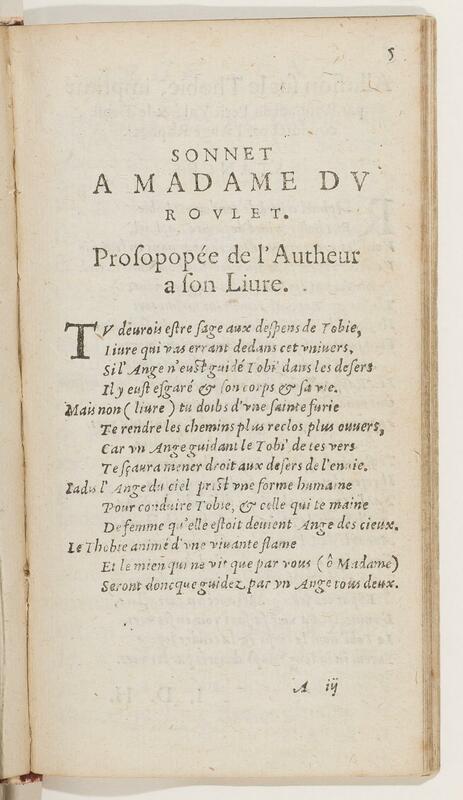 5
SONNET
A MADAME DV
ROVLET.
Proſopopée de l'Autheur
a ſon Liure.
TV deurois eſtre ſage aux deſpens de Tobie,
Liure qui vas errant dedans cet vniuers,
Si l'Ange n'euſt guidé Tobi' dans les deſers
Il y euſt eſgaré & ſon corps & ſa vie.
Mais non (liure) tu doibs d'vne ſainte furie
Te rendre les chemins plus reclos plus ouuers,
Car vn Ange guidant le Tobi' de tes vers
Te ſçaura mener droit aux deſers de l'enuie.
Iadis l'Ange du ciel priſt vne forme humaine
Pour conduire Tobie, & celle qui te maine
De femme qu'elle eſtoit deuient Ange des cieux.
Le Thobie animé d'vne viuante flame
Et le mien qui ne vit que par vous (ô Madame)
Seront doncque guidez par vn Ange tous deux.
A iij